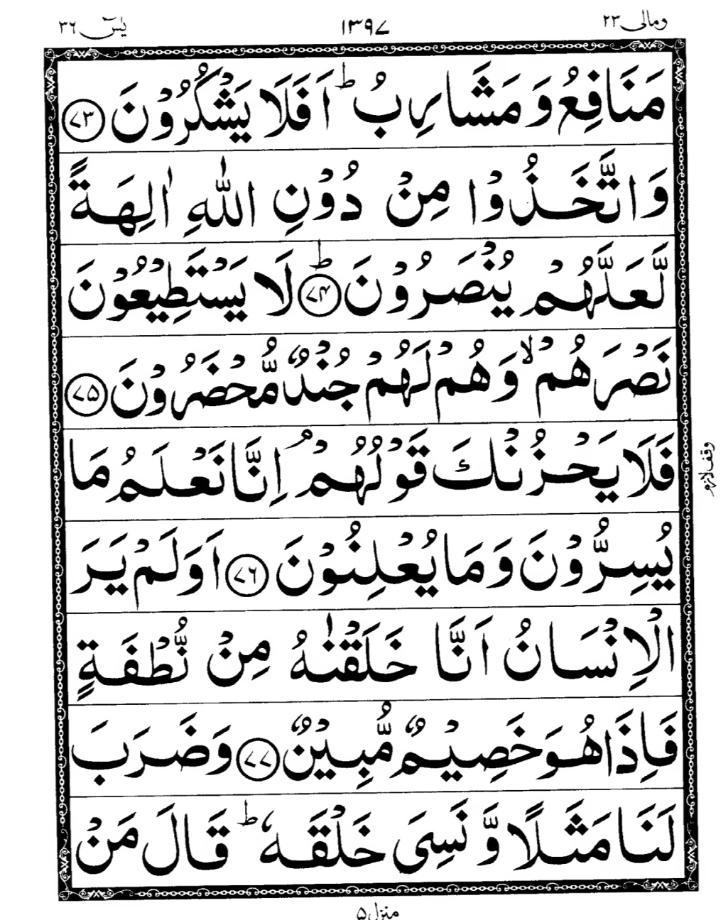 ومالی ٢٣ ١٣٩٧ یٰسٓ ٣٦
مَنَافِعُ وَ مَشَارِبُ ؕ اَفَلَا یَشْكُرُوْنَ ﴿۷۳﴾
وَاتَّخَذُوْا مِنْ دُوْنِ اللّٰهِ اٰلِهَةً
لَّعَلَّهُمْ یُنْصَرُوْنَ ؕ﴿۷۴﴾ لَا یَسْتَطِیْعُوْنَ
نَصْرَهُمْ ۙ وَهُمْ لَهُمْ جُنْدٌ مُّحْضَرُوْنَ ﴿۷۵﴾
فَلَا یَحْزُنْكَ قَوْلُهُمْ ۘ اِنَّا نَعْلَمُ مَا
یُسِرُّوْنَ وَمَا یُعْلِنُوْنَ ﴿۷۶﴾ اَوَلَمْ یَرَ
الْاِنْسَانُ اَنَّا خَلَقْنٰهُ مِنْ نُّطْفَةٍ
فَاِذَا هُوَ خَصِیْمٌ مُّبِیْنٌ ﴿۷۷﴾ وَضَرَبَ
لَنَا مَثَلًا وَّ نَسِیَ خَلْقَهٗ ؕ قَالَ مَنْ
وقف لازم
منزل ۵